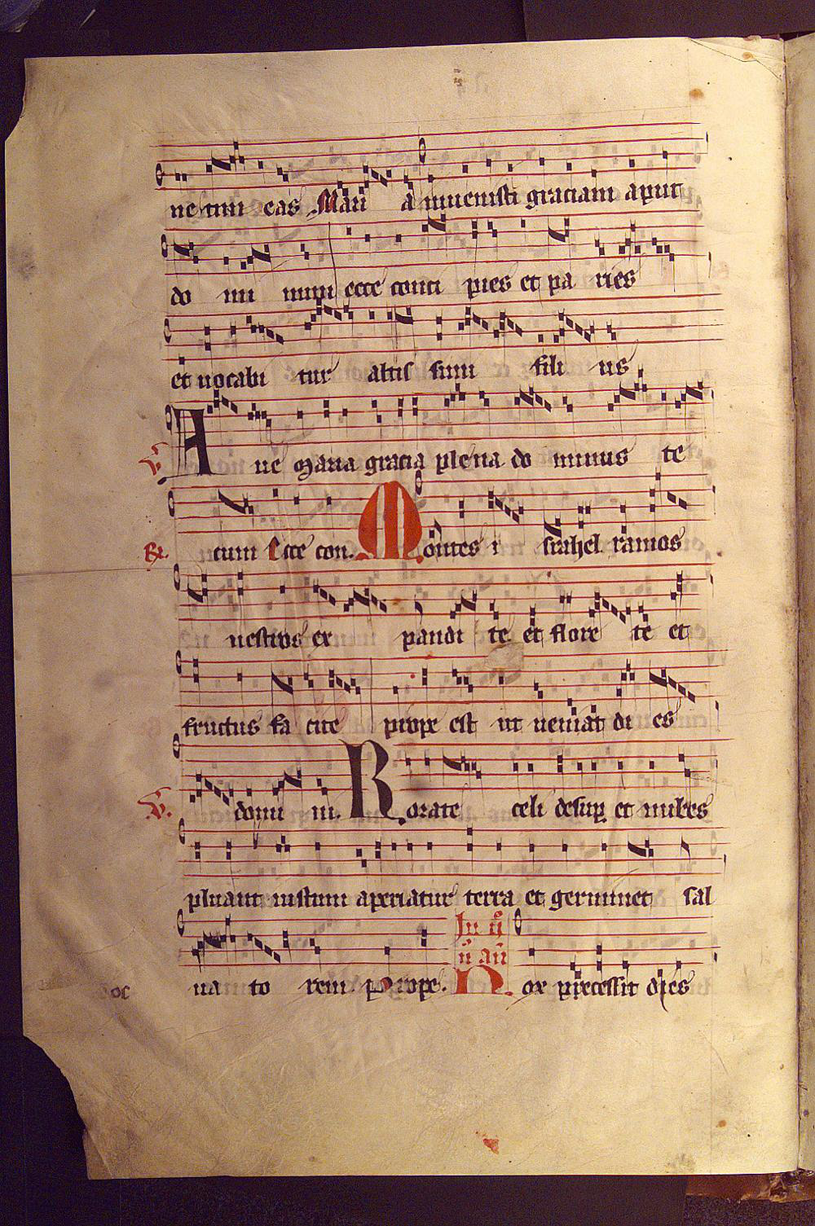 ne tim eas Mari a inuenisti graciam aput
do mi num ecce conci pies et pa ries
et uocabi tur altis simi fili us
V. A ue maria gracia plena do minus te
R. cum Ecce con. Montes i srahel ramos
uestros ex pandi te et flore te et
fructus fa cite prope est ut ueniat di es
V. domi ni. Rorate celi desup et nubes
pluant iustum aperiatur terra et germinet sal
ua to rem Prope. Nox precessit dies